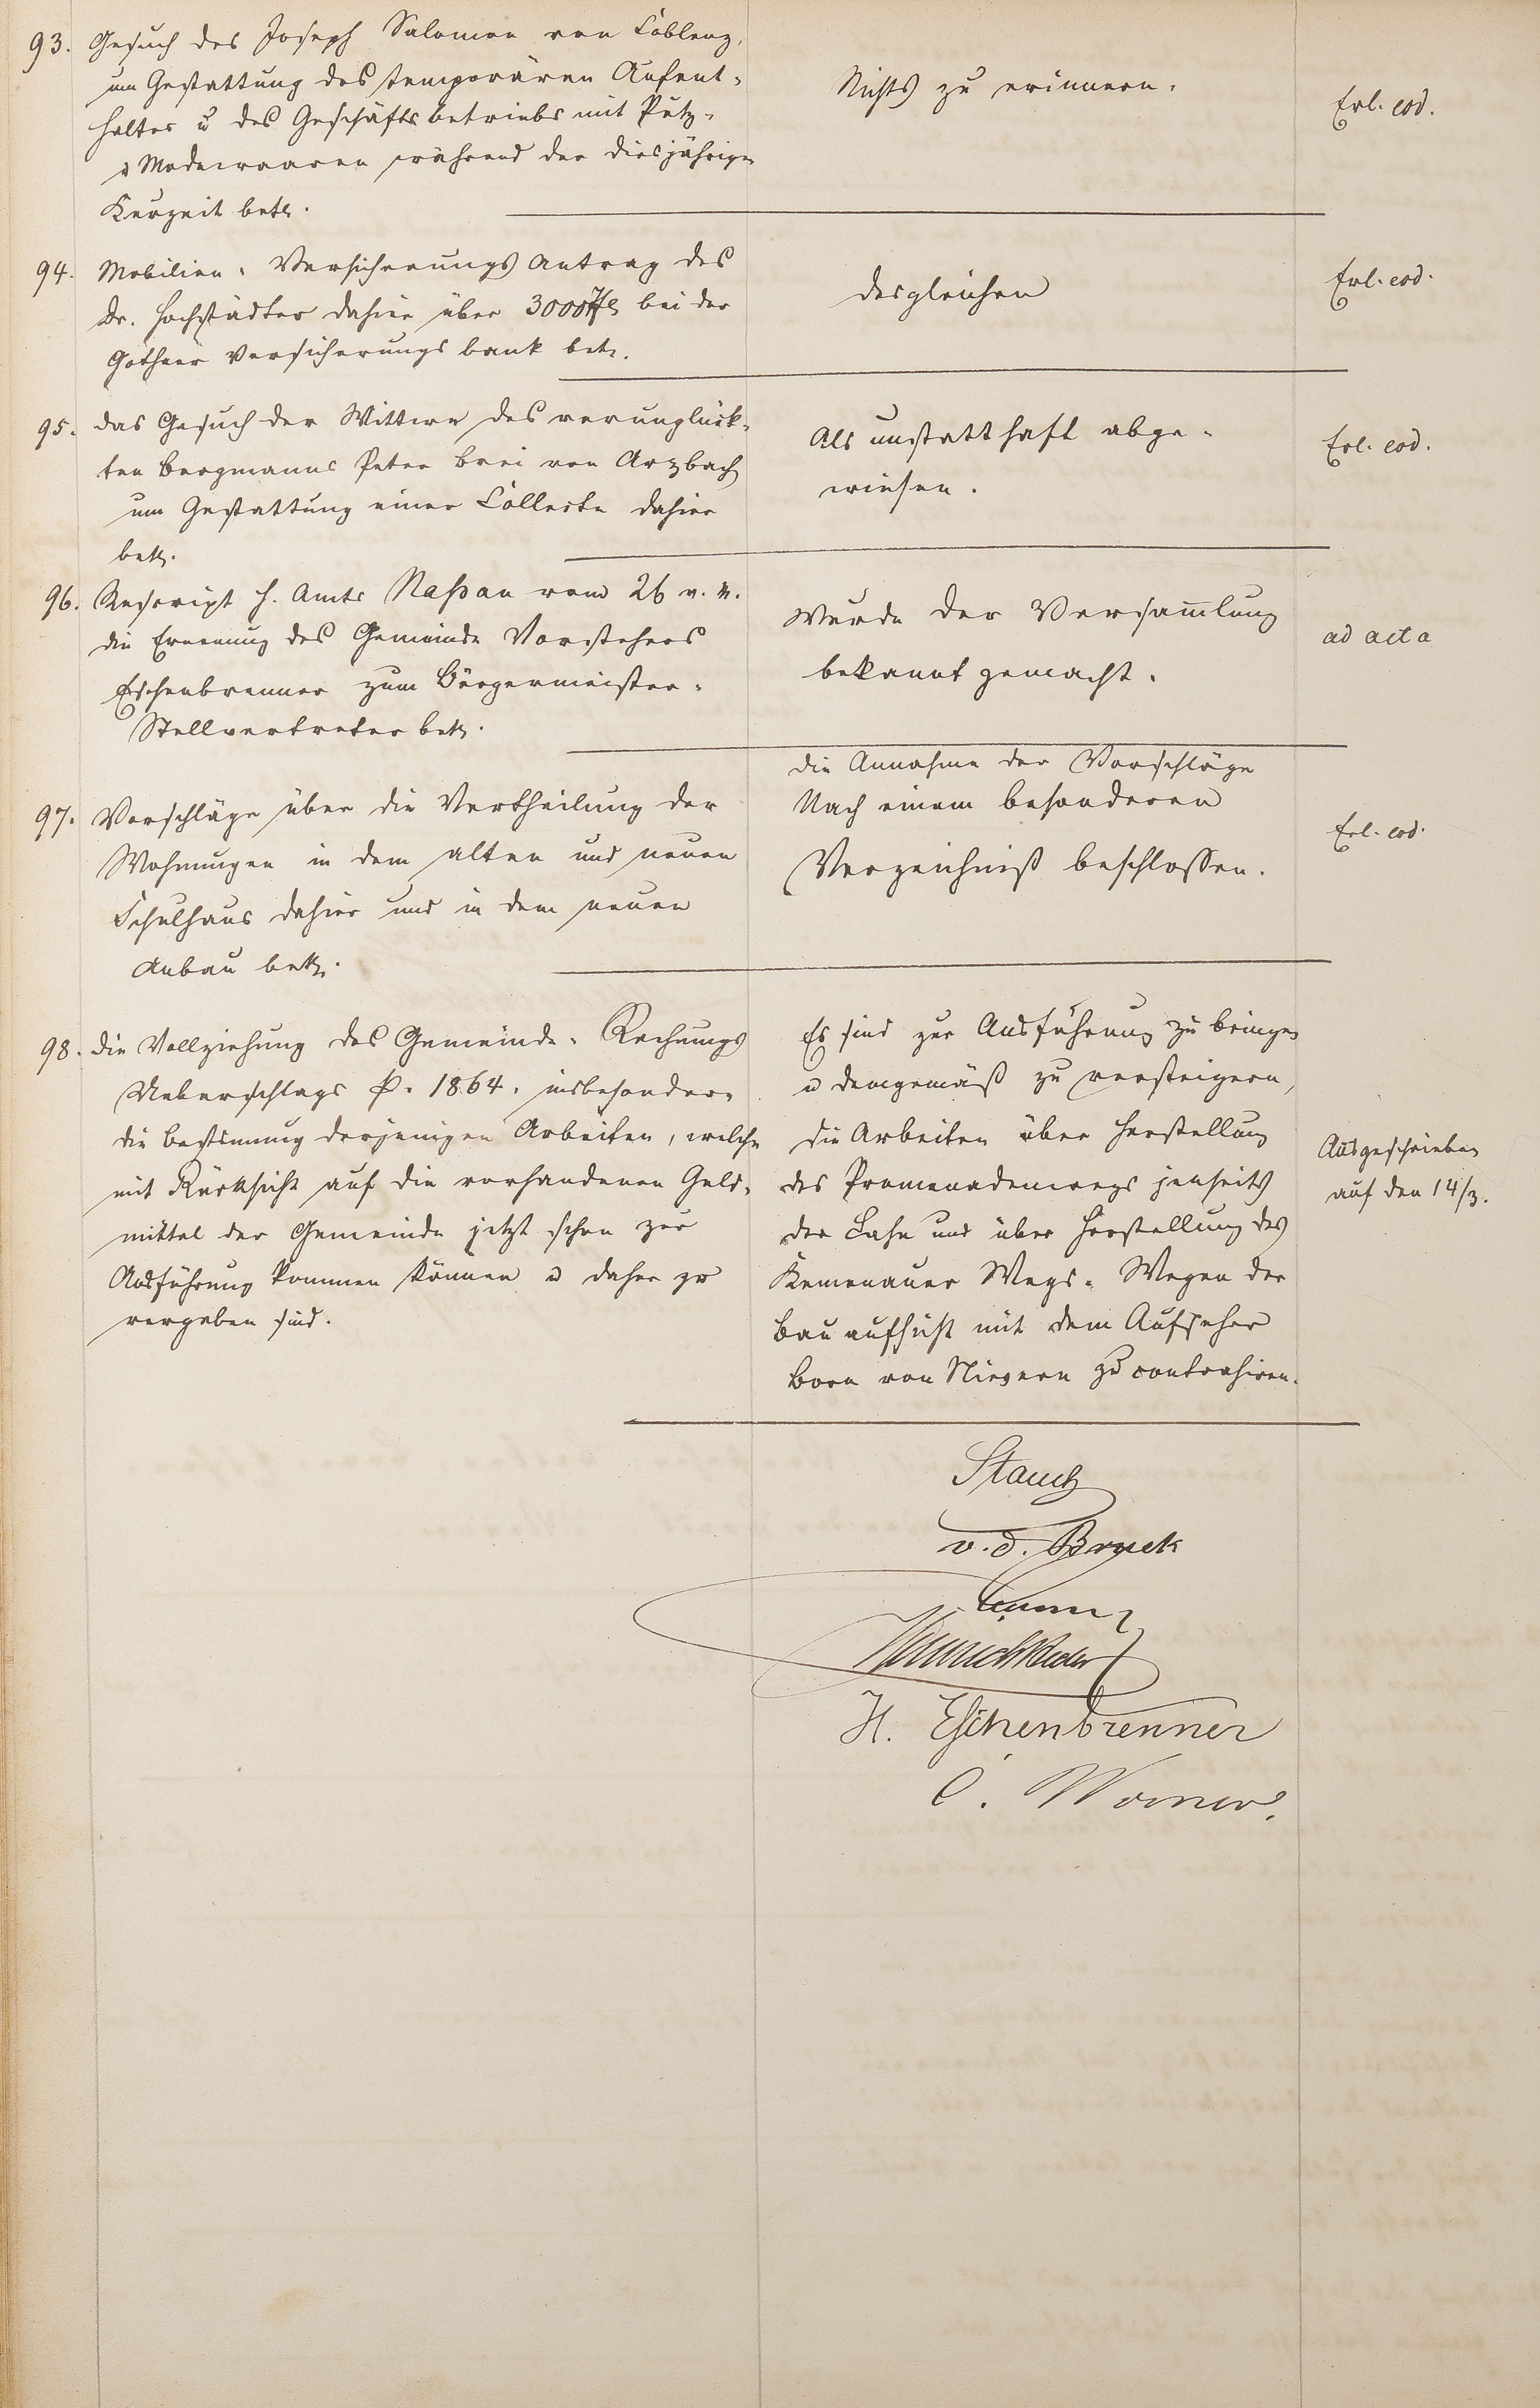 93. Gesuch des Joseph Salomon von Coblenz,
um Gestattung des temporären Aufent-
haltes u des Geschäftsbetriebs mit Putz-
u Modewaaren während der diesjährigen
Kurzeit betr.
Nichts zu erinnern.
Erl. eod.
94. Mobilien-Versicherungs Antrag des
Dr. Hochstädter dahier über 3000 fl bei der
Gothaer Versicherungsbank betr.
desgleichen
Erl. eod.
95. das Gesuch der Wittwe des verunglück-
ten Bergmanns Peter Brei von Arzbach
um Gestattung einer Collecte dahier
betr.
Als unstatthaft abge-
wiesen.
Erl. eod.
96. Rescript H. Amts Naßau vom 26 v. M.
die Ernennung des Gemeinde Vorstehers
Eschenbrenner zum Bürgermeister-
Stellvertreter betr.
Wurde der Versam̅lung
bekannt gemacht.
ad acta
97. Vorschläge über die Vertheilung der
Wohnungen in dem alten und neuen
Schulhaus dahier und in dem neuen
Anbau betr.
die Annahme der Vorschläge
Nach einem besonderen
Verzeichniß beschlossen.
Erl. eod.
98. die Vollziehung des Gemeinde-Rechnungs
Ueberschlags p. 1864. insbesondere
die Bestim̅ung derjenigen Arbeiten, welche
mit Rücksicht auf die vorhandenen Geld-
mittel der Gemeinde jetzt schon zur
Ausführung kommen können u daher zu
vergeben sind.
Es sind zur Ausführung zu bringen
u demgemäß zu versteigern,
die Arbeiten über Herstellung
des Promenadenwegs jenseits
der Lahn und über Herstellung des
Kemenauer Wegs. Wegen der
Bauaufsicht mit dem Aufseher
Born von Nievern zu contrahiren.
Ausgeschrieben
auf den 14/3.
Stauch
v. d. Bruck
H. Eschenbrenner